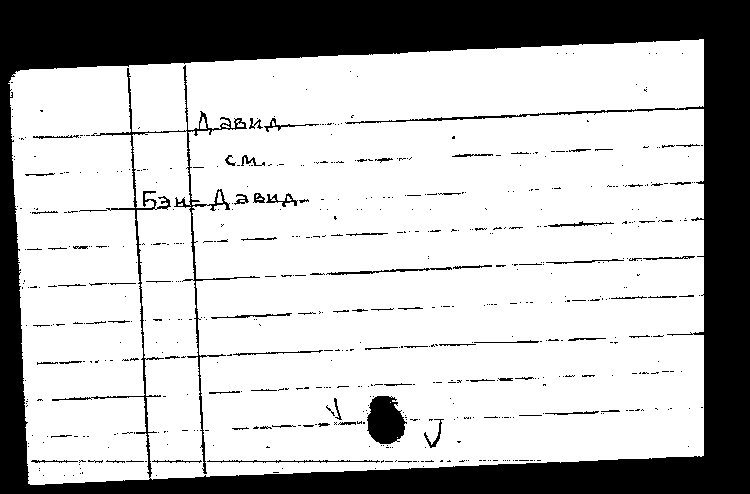 Давид
см.
Бэн-Давид